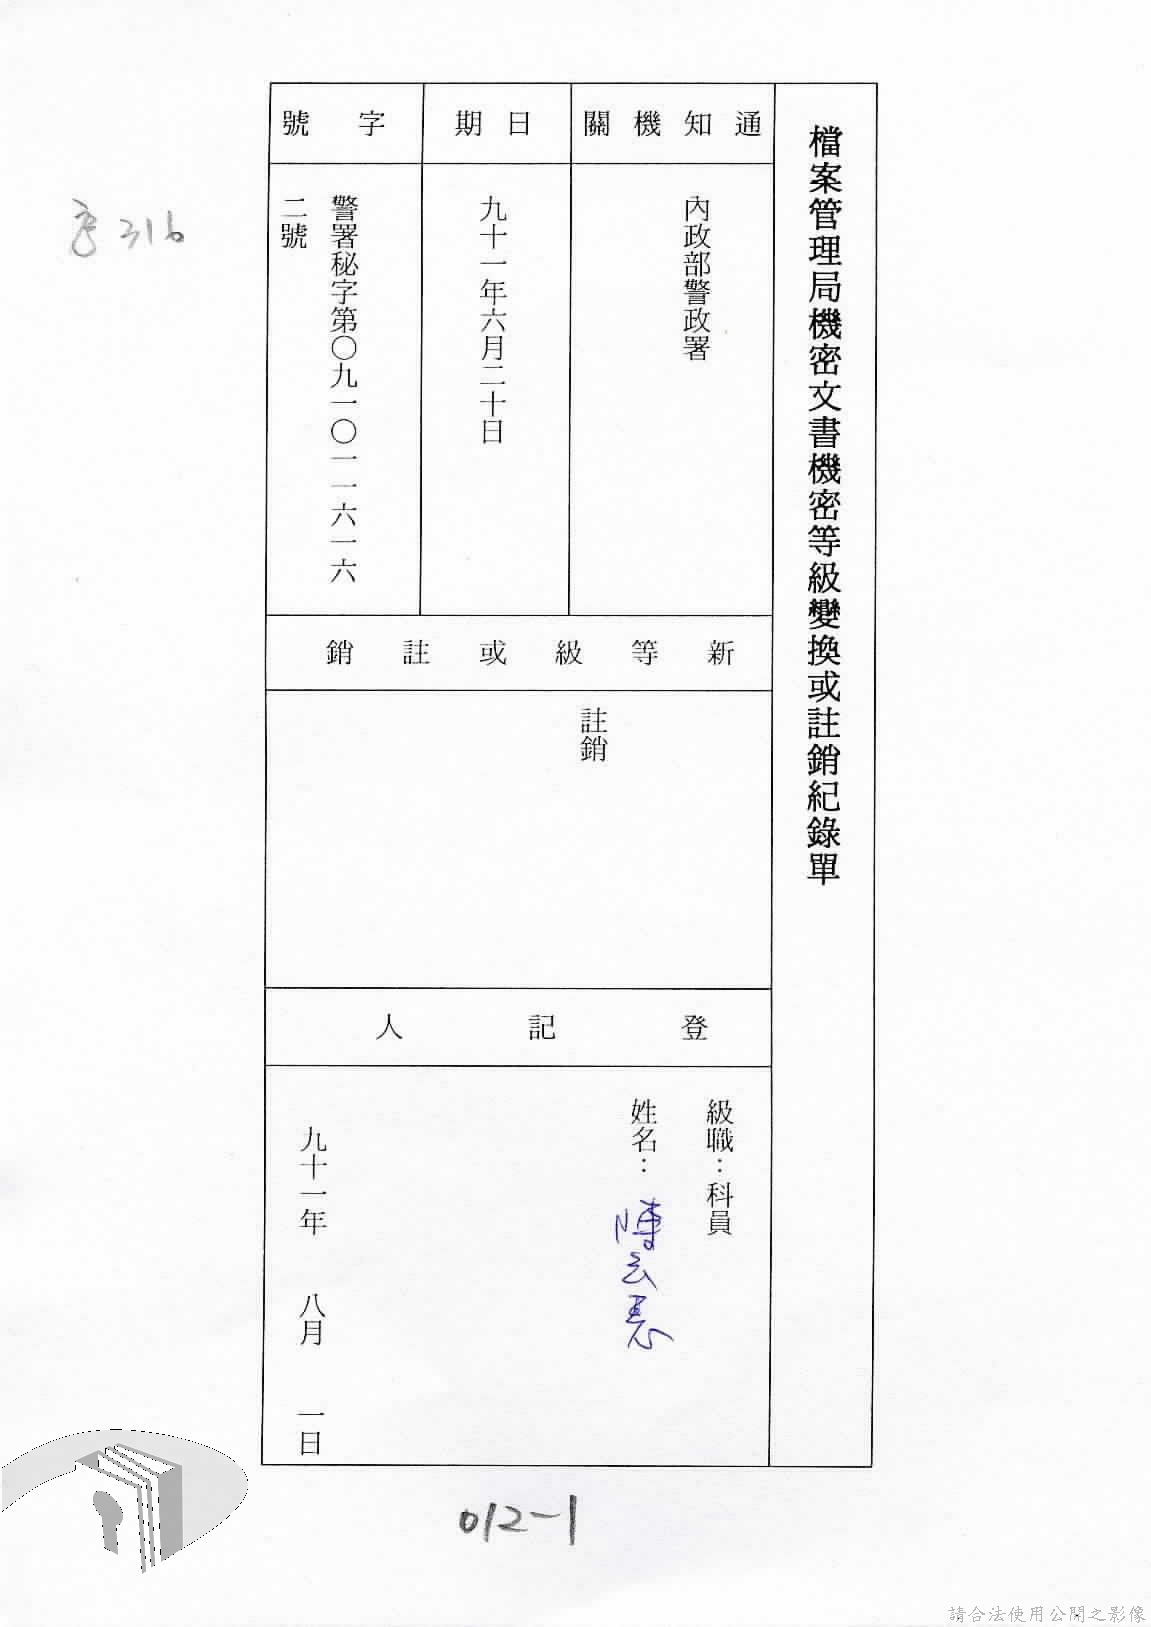 檔案管理局機密文書機密等級變換或註銷紀錄單
通知機關
內政部警政署
日期
九十一年六月二十日
字號
警署秘字第〇九一〇一一六一六
二號
新等級或註銷
註銷
登記人
級職：科員
姓名：陳云惠
九十一年 八月 一日
316
012-1
請合法使用公開之影像